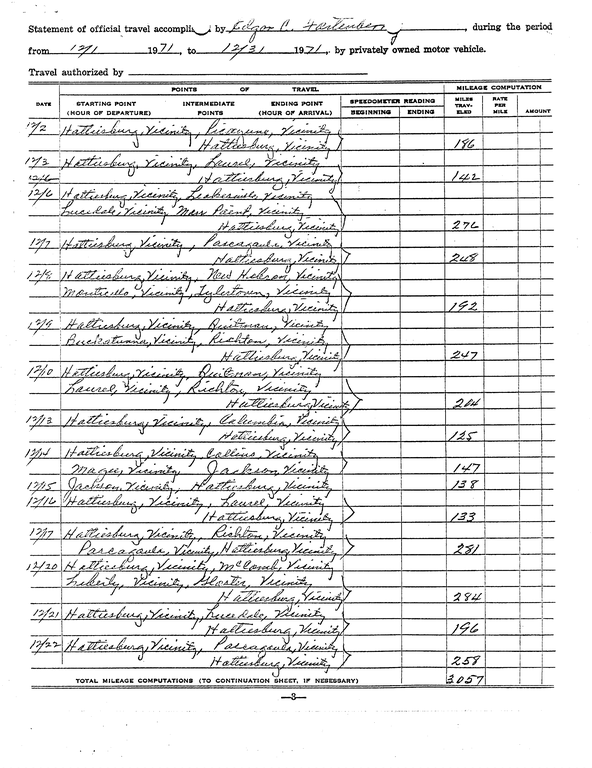 Statement of official travel accomplis by Edgar C. Fortenberry, during the period
from 12/1 1971, to 12/31 1971, by privately owned motor vehicle.
Travel authorized by
POINTS OF TRAVEL MILEAGE COMPUTATION
DATE STARTING POINT (HOUR OF DEPARTURE) INTERMEDIATE POINTS ENDING POINT (HOUR OF ARRIVAL) SPEEDOMETER READING BEGINNING ENDING MILES TRAVELED RATE PER MILE AMOUNT
12/2 Hattiesburg, Vicinity, Picayune, Vicinity
Hattiesburg, Vicinity 186
12/3 Hattiesburg, Vicinity, Laurel, Vicinity
12/6 Hattiesburg, Vicinity 142
12/6 Hattiesburg, Vicinity, Leakesville, Vicinity
Lucedale, Vicinity, Moss Point, Vicinity
Hattiesburg, Vicinity 276
12/7 Hattiesburg, Vicinity, Pascagoula, Vicinity
Hattiesburg, Vicinity 248
12/8 Hattiesburg, Vicinity, New Hebron, Vicinity
Monticello, Vicinity, Tylertown, Vicinity
Hattiesburg, Vicinity 192
12/9 Hattiesburg, Vicinity, Quitman, Vicinity
Buckatunna, Vicinity, Richton, Vicinity
Hattiesburg, Vicinity 247
12/10 Hattiesburg, Vicinity, Quitman, Vicinity
Laurel, Vicinity, Richton, Vicinity
Hattiesburg, Vicinity 204
12/13 Hattiesburg, Vicinity, Columbia, Vicinity
Hattiesburg, Vicinity 125
12/14 Hattiesburg, Vicinity, Collins, Vicinity
Magee, Vicinity, Jackson, Vicinity 147
12/15 Jackson, Vicinity, Hattiesburg, Vicinity 138
12/16 Hattiesburg, Vicinity, Laurel, Vicinity
Hattiesburg, Vicinity 133
12/17 Hattiesburg, Vicinity, Richton, Vicinity
Pascagoula, Vicinity, Hattiesburg, Vicinity 281
12/20 Hattiesburg, Vicinity, McComb, Vicinity
Liberty, Vicinity, Gloster, Vicinity
Hattiesburg, Vicinity 284
12/21 Hattiesburg, Vicinity, Lucedale, Vicinity
Hattiesburg, Vicinity 196
12/22 Hattiesburg, Vicinity, Pascagoula, Vicinity
Hattiesburg, Vicinity 258
TOTAL MILEAGE COMPUTATIONS (TO CONTINUATION SHEET, IF NESESSARY) 3057
—3—